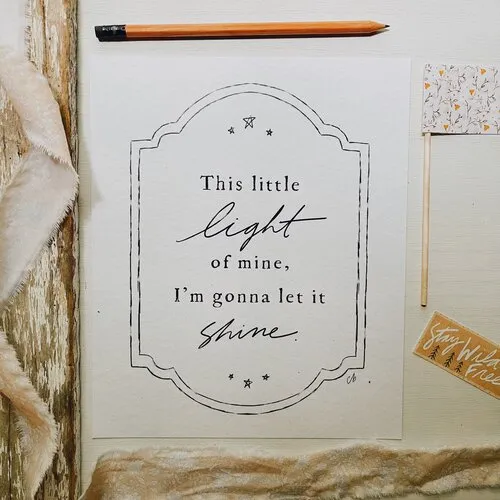 This little
light
of mine,
I'm gonna let it
shine.
Stay Wild
Free